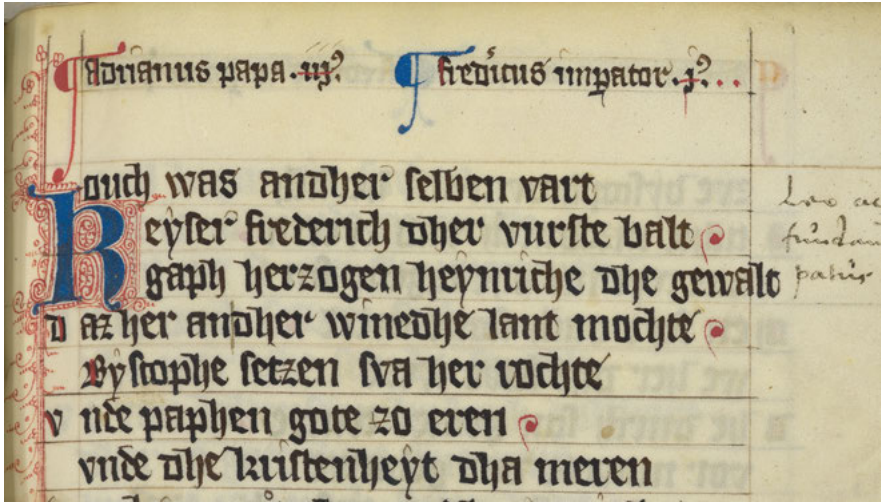 adrianus papa .iiij⁹. fred'icus imp̱ator .j⁹...
ouch was andher selben vart
Keyser frederich dher vurste balt
gaph herzogen heynriche dhe gewalt
daz her andher winedhe lant mochte
Byscophe setzen sva her rochte
vnde paphen gote zo eren
vnde dhe kristenheyt dha meren
leo